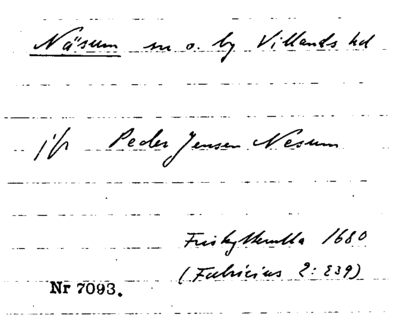 Näsum sn o. by Villands hd
jfr Peder Jensen Nesum
Friskytterulla 1680
(Fabricius 2: 239)
Nr 7093.